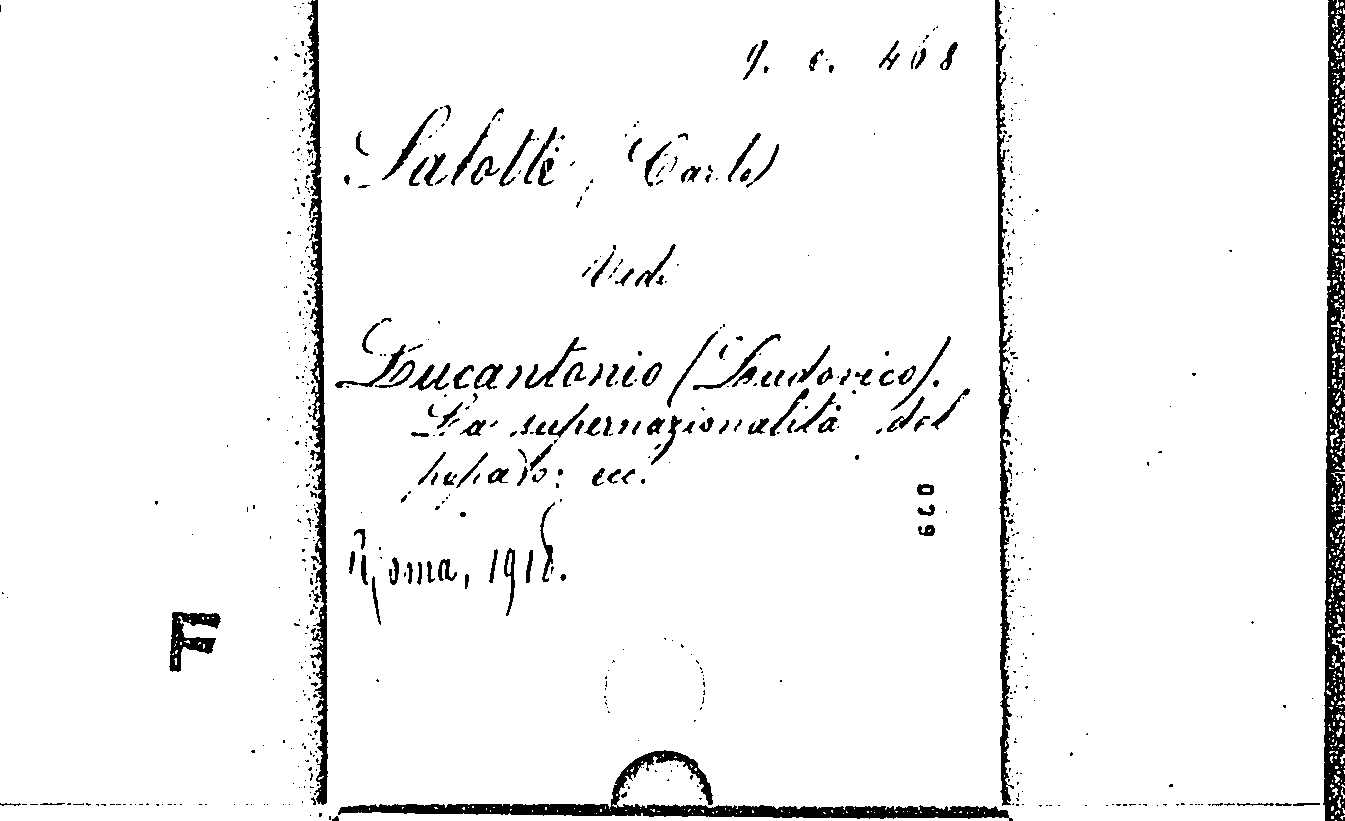 q. c. 468
Salotti, (Carlo)
Vedi
Lucantonio (Ludovico).
La supernazionalità del
papato: ecc.
Roma, 1918.
029
F